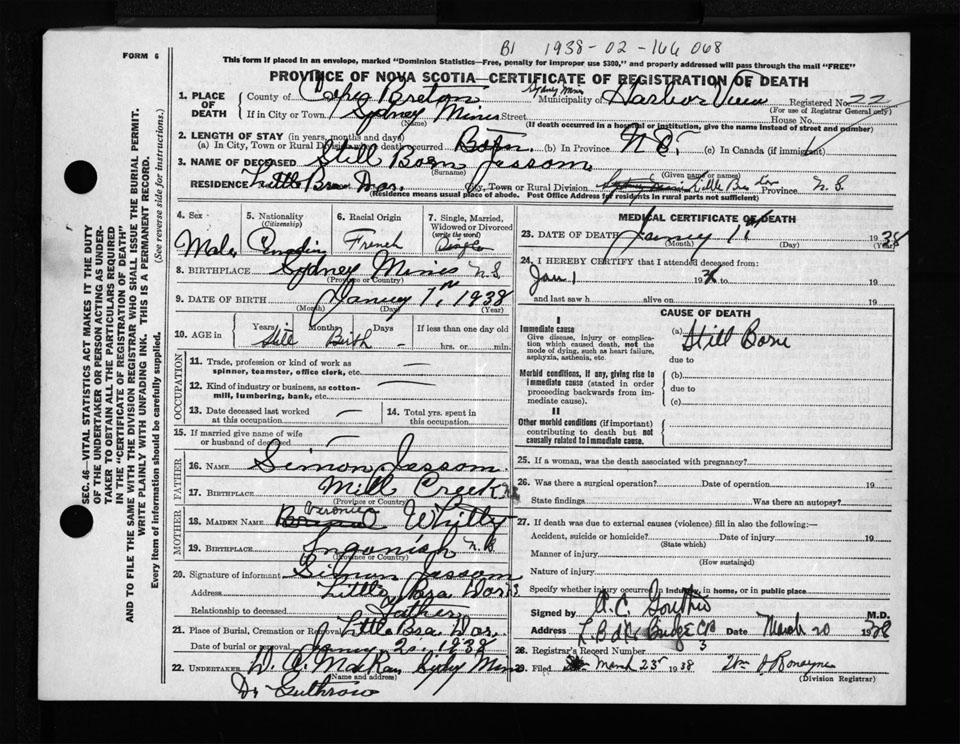 B1 1938-02-166 068
FORM 6
This form if placed in an envelope, marked "Dominion Statistics—Free, penalty for improper use $300," and properly addressed will pass through the mail "FREE"
PROVINCE OF NOVA SCOTIA—CERTIFICATE OF REGISTRATION OF DEATH
SEC. 46—VITAL STATISTICS ACT MAKES IT THE DUTY
OF THE UNDERTAKER OR PERSON ACTING AS UNDER-
TAKER TO OBTAIN ALL THE PARTICULARS REQUIRED
IN THE "CERTIFICATE OF REGISTRATION OF DEATH"
AND TO FILE THE SAME WITH THE DIVISION REGISTRAR WHO SHALL ISSUE THE BURIAL PERMIT.
WRITE PLAINLY WITH UNFADING INK. THIS IS A PERMANENT RECORD.
Every item of information should be carefully supplied. (See reverse side for instructions.)
1. PLACE OF DEATH County of Cape Breton Sydney Mines Municipality of Harbor View Registered No. 22
(For use of Registrar General only)
If in City or Town Sydney Mines Street House No.
(Name) (If death occurred in a hospital or institution, give the name instead of street and number)
2. LENGTH OF STAY (in years, months and days)
(a) In City, Town or Rural Division where death occurred Born (b) In Province N.S. (c) In Canada (if immigrant)
3. NAME OF DECEASED Still Born Jessom
(Surname) (Given name or names)
RESIDENCE Little Bras Dor City, Town or Rural Division Sydney Mines Little Bras Dor Province N.S.
(Residence means usual place of abode. Post Office Address for residents in rural parts not sufficient)
4. Sex Male
5. Nationality (Citizenship) Canadian
6. Racial Origin French
7. Single, Married, Widowed or Divorced (write the word) Single
8. BIRTHPLACE Sydney Mines N.S.
(Province or Country)
9. DATE OF BIRTH January 1, 1938
(Month) (Day) (Year)
10. AGE in Years Months Days If less than one day old
Still Birth - hrs. or min.
OCCUPATION
11. Trade, profession or kind of work as spinner, teamster, office clerk, etc. —
12. Kind of industry or business, as cotton-mill, lumbering, bank, etc. —
13. Date deceased last worked at this occupation —
14. Total yrs. spent in this occupation
15. If married give name of wife or husband of deceased —
FATHER
16. NAME Simon Jessom
17. BIRTHPLACE Mill Creek N.S.
(Province or Country)
MOTHER
18. MAIDEN NAME Veronica Whitty
19. BIRTHPLACE Ingonish N.S.
(Province or Country)
20. Signature of informant Simon Jessom
Address Little Bras Dor
Relationship to deceased Father
21. Place of Burial, Cremation or Removal Little Bras Dor
Date of burial or removal January 2, 1938
22. UNDERTAKER Sydney Mines
(Name and address)
MEDICAL CERTIFICATE OF DEATH
23. DATE OF DEATH January 1st 1938
(Month) (Day) (Year)
24. I HEREBY CERTIFY that I attended deceased from:
Jan 1 19 to 19
and last saw h alive on 19
CAUSE OF DEATH
I
Immediate cause (a) Still Born
Give disease, injury or complication which caused death, not the mode of dying, such as heart failure, asphyxia, asthenia, etc. due to
Morbid conditions, if any, giving rise to immediate cause (stated in order proceeding backwards from immediate cause). (b)
due to
(c)
II
Other morbid conditions (if important) contributing to death but not causally related to immediate cause.
25. If a woman, was the death associated with pregnancy?
26. Was there a surgical operation? Date of operation 19
State findings Was there an autopsy?
27. If death was due to external causes (violence) fill in also the following:—
Accident, suicide or homicide? Date of injury 19
(State which)
Manner of injury
(How sustained)
Nature of injury
Specify whether injury occurred in industry, in home, or in public place
Signed by M.D.
Address Date March 20 1938
28. Registrar's Record Number 3
29. Filed March 23rd 1938
(Division Registrar)